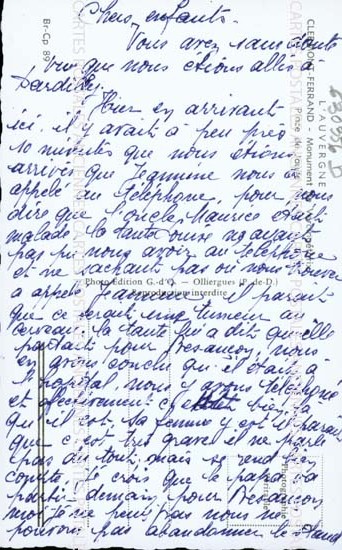 Chers enfants.
Vous avez sans doute
vu que nous étions allés à
Dardilly.
Hier en arrivant
ici il y avait à peu près
10 minutes que nous étions
arrivés que Jeannine nous a
appelé au téléphone, pour nous
dire que l'oncle Maurice était
malade la tante ayant
pas pu nous avoir au téléphone
et ne sachant pas où nous trouver
a appelé Jeannine il paraît
que ce serait une tumeur au
cerveau la tante lui a dit qu'elle
partait pour Besançon, nous
en avons conclu qu'il était à
l'hôpital, nous y avons téléphoné
et effectivement c'est bien là
qu'il est, sa femme y est il paraît
que c'est très grave il ne parle
pas du tout, mais se rend bien
compte. Je crois que le papa va
partir demain pour Besançon
moi je ne peux pas nous ne
pouvons pas abandonner
Br-Cp 89
CLERMONT-FERRAND - Monument
Place de Jaude
L'AUVERGNE
Photo Edition G. d'O. — Olliergues (P.-de-D.)
Reproduction interdite
Photographie